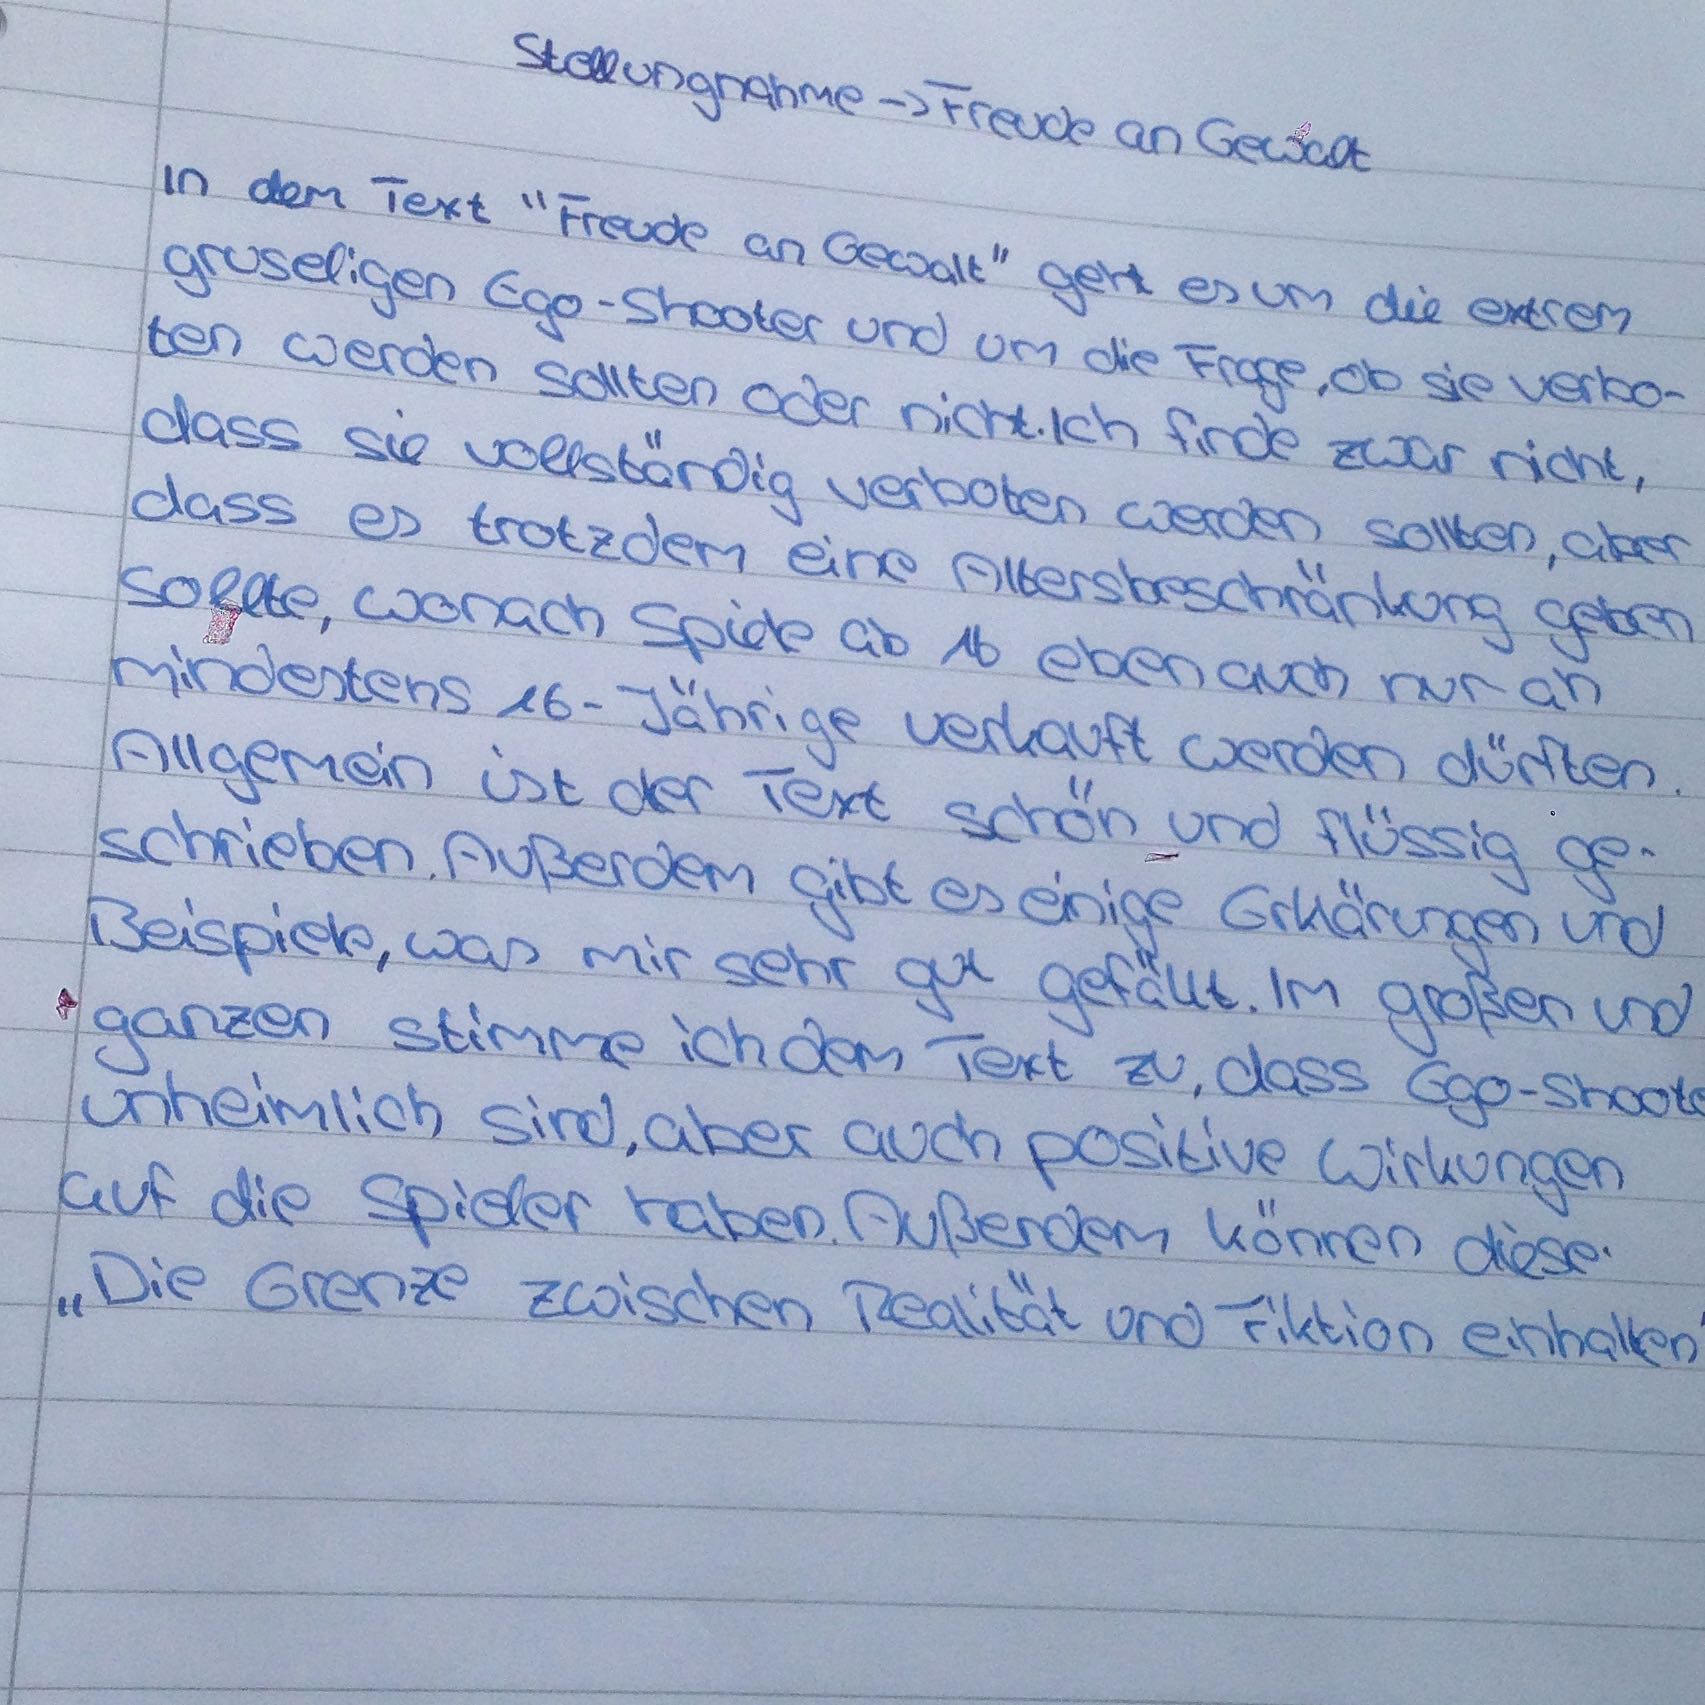 Stellungnahme -> Freude an Gewalt
In dem Text "Freude an Gewalt" geht es um die extrem
gruseligen Ego-Shooter und um die Frage, ob sie verbo-
ten werden sollten oder nicht. Ich finde zwar nicht,
dass sie vollständig verboten werden sollten, aber
dass es trotzdem eine Altersbeschränkung geben
sollte, wonach Spiele ab 16 eben auch nur an
mindestens 16-Jährige verkauft werden dürften.
Allgemein ist der Text schön und flüssig ge-
schrieben. Außerdem gibt es einige Erklärungen und
Beispiele, was mir sehr gut gefällt. Im großen und
ganzen stimme ich dem Text zu, dass Ego-Shoote
unheimlich sind, aber auch positive Wirkungen
auf die Spieler haben. Außerdem können diese
„Die Grenze zwischen Realität und Fiktion einhalten"